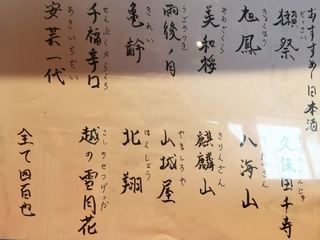 おすすめ日本酒
だっさい
獺祭
久保田千寿
きょくほう
旭鳳
八海山
みわざくら
美和桜
きりんざん
麒麟山
うごのつき
雨後ノ月
やましろや
山城屋
きれい
亀齢
ほくしょう
北翔
せんぷくからくち
千福辛口
こしのせつげっか
越の雪月花
あきいちだい
安芸一代
全て四百也